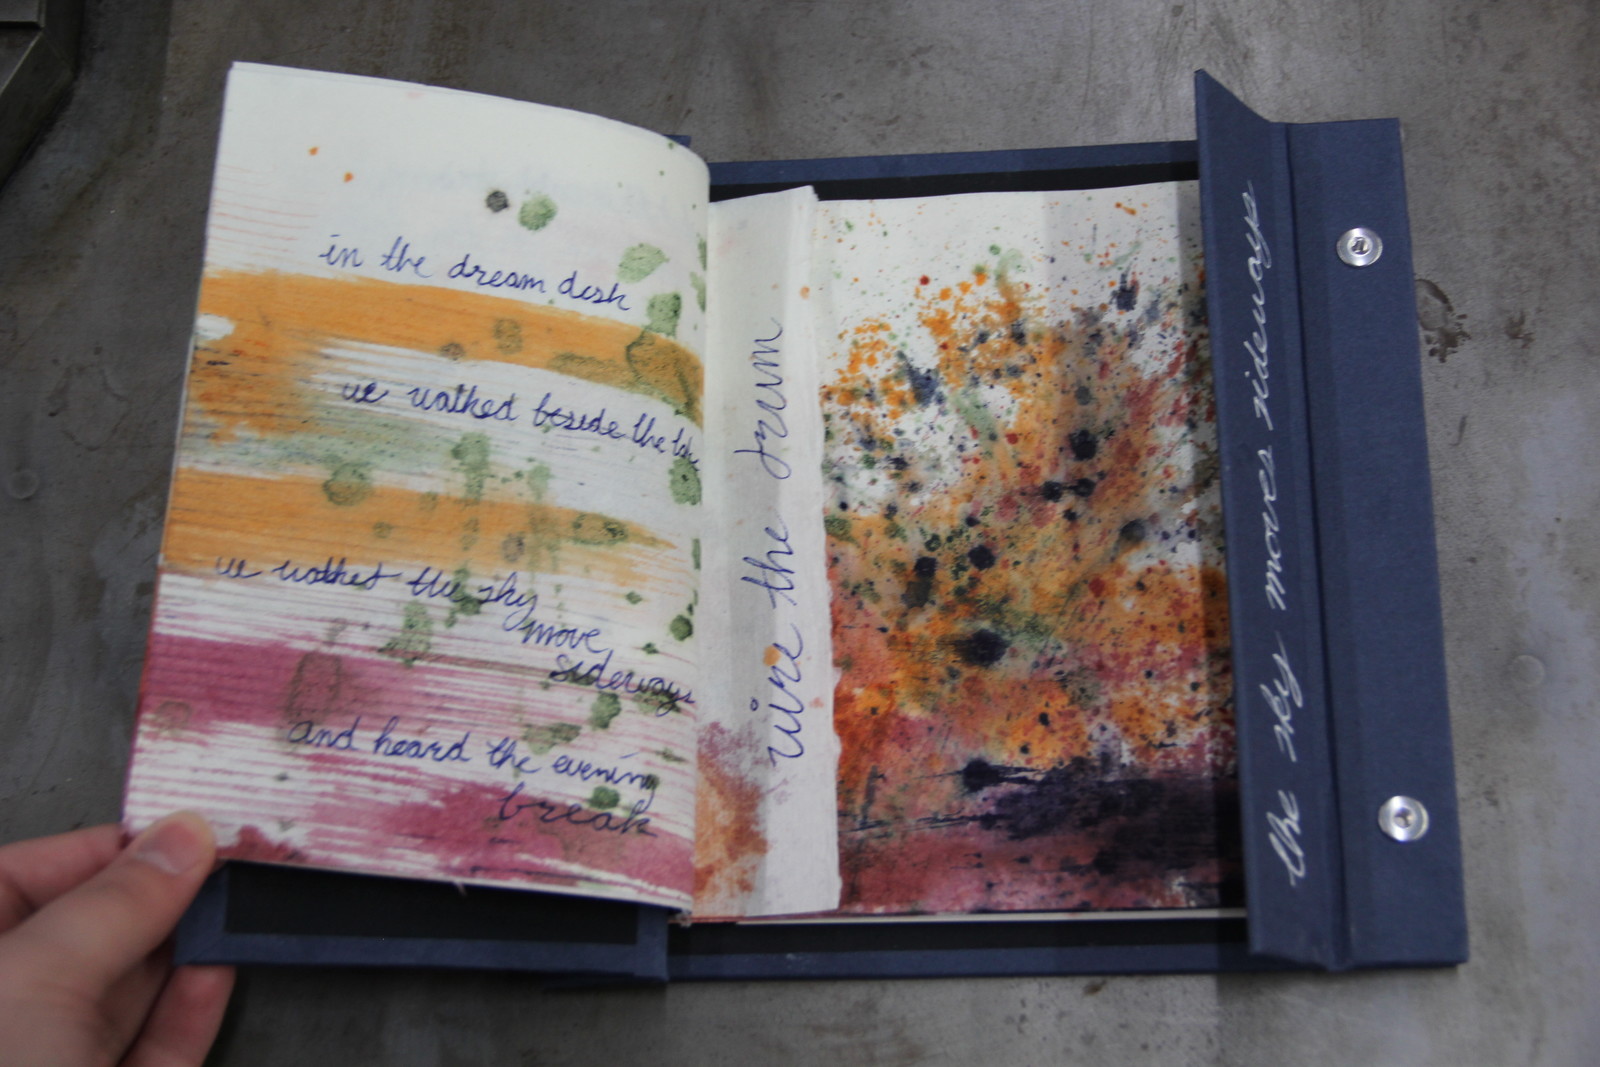 in the dream dish
we walked beside the
we watched the sky
move
sideways
and heard the evening
break
wire the drum
the sky moves sideways